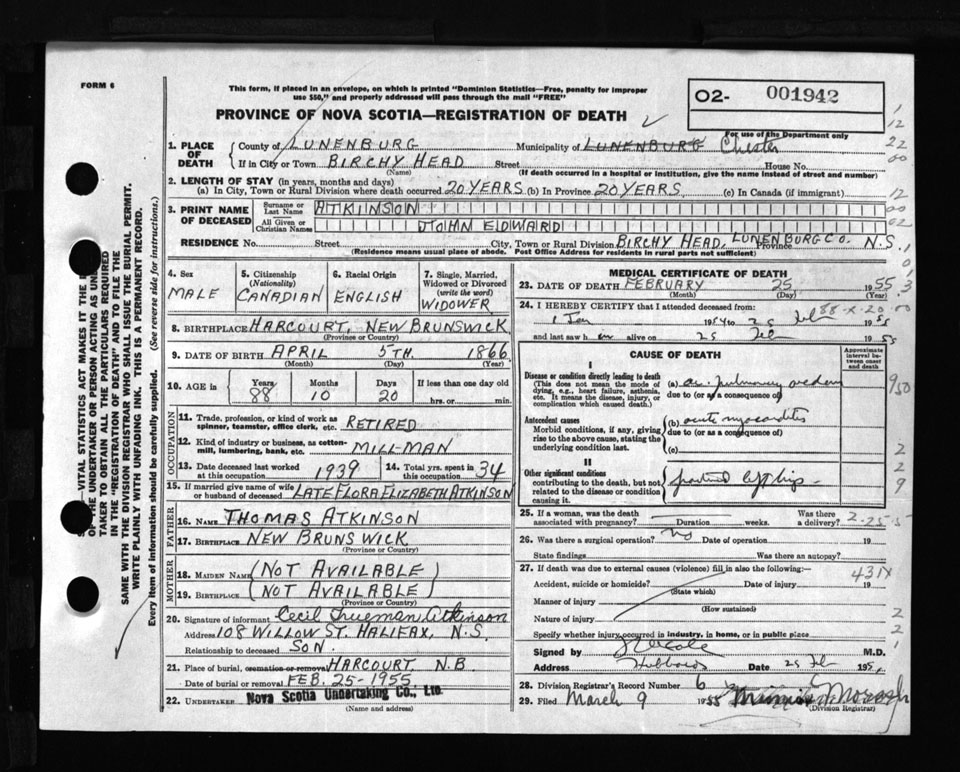 FORM 6
This form, if placed in an envelope, on which is printed "Dominion Statistics—Free, penalty for improper
use $50," and properly addressed will pass through the mail "FREE"
O2- 001942
For use of the Department only
PROVINCE OF NOVA SCOTIA—REGISTRATION OF DEATH
1. PLACE OF DEATH County of LUNENBURG Municipality of LUNENBURG Chester
If in City or Town BIRCHY HEAD Street House No.
(Name) (If death occurred in a hospital or institution, give the name instead of street and number)
2. LENGTH OF STAY (in years, months and days)
(a) In City, Town or Rural Division where death occurred 20 YEARS (b) In Province 20 YEARS (c) In Canada (if immigrant)
3. PRINT NAME OF DECEASED Surname or Last Name ATKINSON
All Given or Christian Names JOHN EDWARD
RESIDENCE No. Street City, Town or Rural Division BIRCHY HEAD, LUNENBURG CO. Province N.S.
(Residence means usual place of abode. Post Office Address for residents in rural parts not sufficient)
4. Sex MALE
5. Citizenship (Nationality) CANADIAN
6. Racial Origin ENGLISH
7. Single, Married, Widowed or Divorced (write the word) WIDOWER
8. BIRTHPLACE HARCOURT, NEW BRUNSWICK
(Province or Country)
9. DATE OF BIRTH APRIL 5TH. 1866
(Month) (Day) (Year)
10. AGE in Years 88 Months 10 Days 20 If less than one day old hrs. or min.
OCCUPATION
11. Trade, profession, or kind of work as spinner, teamster, office clerk, etc. RETIRED
12. Kind of industry or business, as cotton-mill, lumbering, bank, etc. MILL-MAN
13. Date deceased last worked at this occupation 1939 14. Total yrs. spent in 34
15. If married give name of wife or husband of deceased LATE FLORA ELIZABETH ATKINSON
FATHER
16. NAME THOMAS ATKINSON
17. BIRTHPLACE NEW BRUNSWICK
(Province or Country)
MOTHER
18. MAIDEN NAME (NOT AVAILABLE)
19. BIRTHPLACE (NOT AVAILABLE)
(Province or Country)
20. Signature of informant Cecil Trueman Atkinson
Address 108 WILLOW ST. HALIFAX, N.S.
Relationship to deceased SON.
21. Place of burial, cremation or removal HARCOURT, N.B
Date of burial or removal FEB. 25-1955
22. UNDERTAKER Nova Scotia Undertaking Co., Ltd.
(Name and address)
MEDICAL CERTIFICATE OF DEATH
23. DATE OF DEATH FEBRUARY 25 1955
(Month) (Day) (Year)
24. I HEREBY CERTIFY that I attended deceased from:
1 Jan 1954 to 25 Feb 1955
and last saw h im alive on 25 Feb 1955
CAUSE OF DEATH
Approximate interval between onset and death
I
Disease or condition directly leading to death (a) ac. pulmonary oedema
(This does not mean the mode of dying, e.g., heart failure, asthenia, etc. It means the disease, injury, or complication which caused death.) due to (or as a consequence of)
Antecedent causes (b) acute myocarditis
Morbid conditions, if any, giving rise to the above cause, stating the underlying condition last. due to (or as a consequence of)
(c)
II
Other significant conditions
contributing to the death, but not related to the disease or condition causing it. fractured left hip
25. If a woman, was the death associated with pregnancy? Duration weeks. Was there a delivery?
2-25-5
26. Was there a surgical operation? No Date of operation 19
State findings Was there an autopsy?
27. If death was due to external causes (violence) fill in also the following:—
431X
Accident, suicide or homicide? Date of injury 19
(State which)
Manner of injury
(How sustained)
Nature of injury
Specify whether injury occurred in industry, in home, or in public place
Signed by M.D.
Address Hubbards Date 25 Feb 195
28. Division Registrar's Record Number 6
29. Filed March 9 1955
(Division Registrar)
SAME WITH THE DIVISION REGISTRAR WHO SHALL ISSUE THE BURIAL PERMIT.
WRITE PLAINLY WITH UNFADING INK. THIS IS A PERMANENT RECORD.
Every item of information should be carefully supplied. (See reverse side for instructions.)